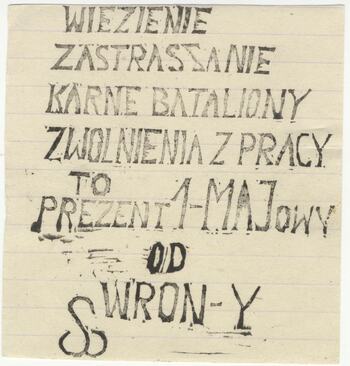 WIEZIENIE
ZASTRASSANIE
KARNE BATALIONY
ZWOLNIENIA Z PRACY
TO
PREZENT 1-MAJOWY
OD
WRON-Y